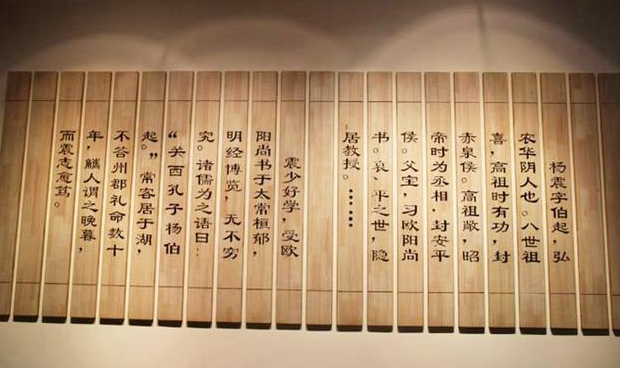 杨震字伯起，弘
农华阴人也。八世祖
喜，高祖时有功，封
赤泉侯。高祖敞，昭
帝时为丞相，封安平
侯。父宝，习欧阳尚
书。哀、平之世，隐
居教授。……
震少好学，受欧
阳尚书于太常桓郁，
明经博览，无不穷
究。诸儒为之语曰：
“关西孔子杨伯
起。”常客居于湖，
不答州郡礼命数十
年，觽人谓之晚暮，
而震志愈笃。